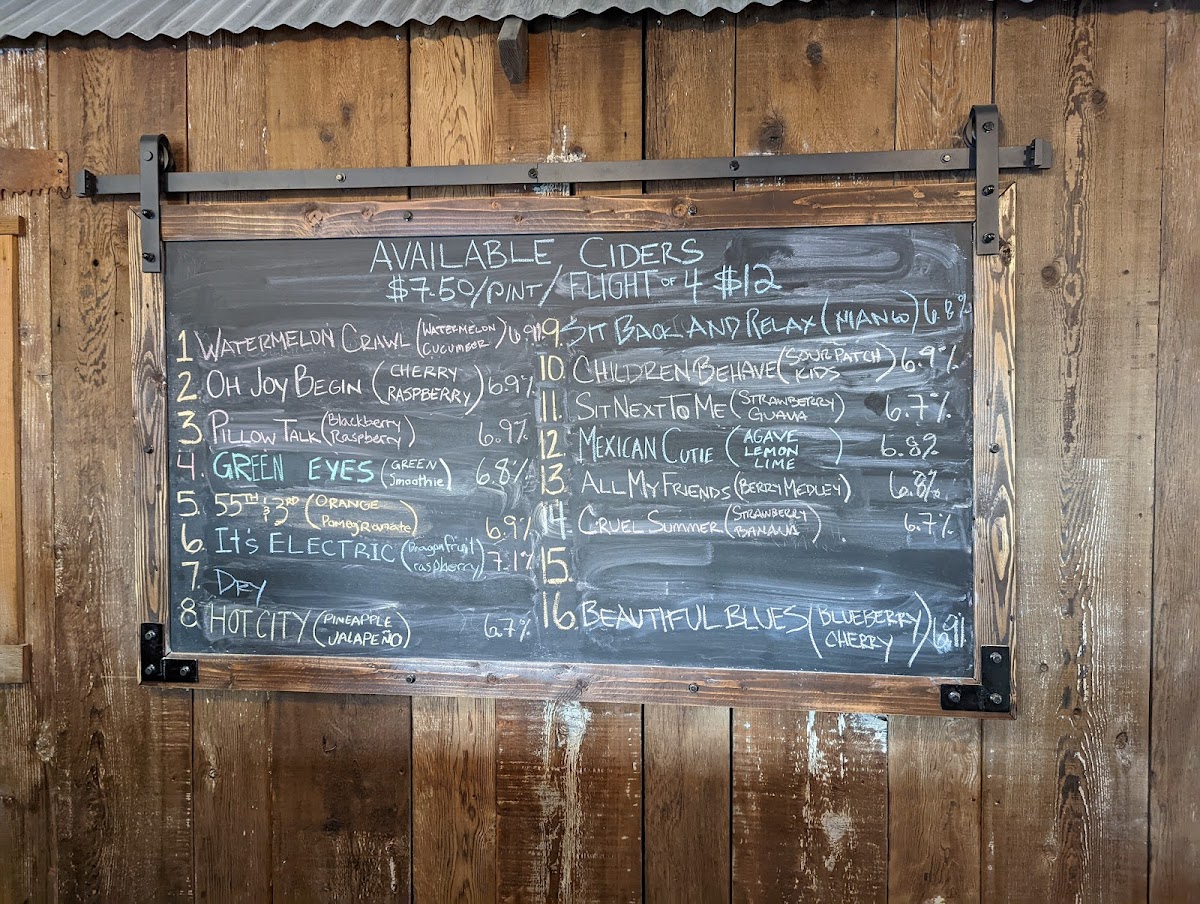 AVAILABLE CIDERS
$7.50/PINT/FLIGHT OF 4 $12
1 WATERMELON CRAWL (WATERMELON CUCUMBER) 6.9%
2. OH JOY BEGIN (CHERRY RASPBERRY) 6.9%
3. PILLOW TALK (Blackberry Raspberry) 6.9%
4. GREEN EYES (GREEN Smoothie) 6.8%
5. 55TH & 3RD (ORANGE Pomegranate) 6.9%
6. It's ELECTRIC (Dragonfruit raspberry) 7.1%
7. DRY
8. HOT CITY (PINEAPPLE JALAPEÑO) 6.7%
9. SIT BACK AND RELAX (MANGO) 6.8%
10. CHILDREN BEHAVE (SOUR PATCH KIDS) 6.9%
11. SIT NEXT TO ME (STRAWBERRY GUAVA) 6.7%
12 MEXICAN CUTIE (AGAVE LEMON LIME) 6.8%
13. ALL MY FRIENDS (BERRY MEDLEY) 6.8%
14. CRUEL SUMMER (STRAWBERRY BANANA) 6.7%
15.
16. BEAUTIFUL BLUES (BLUEBERRY CHERRY) 6.9%